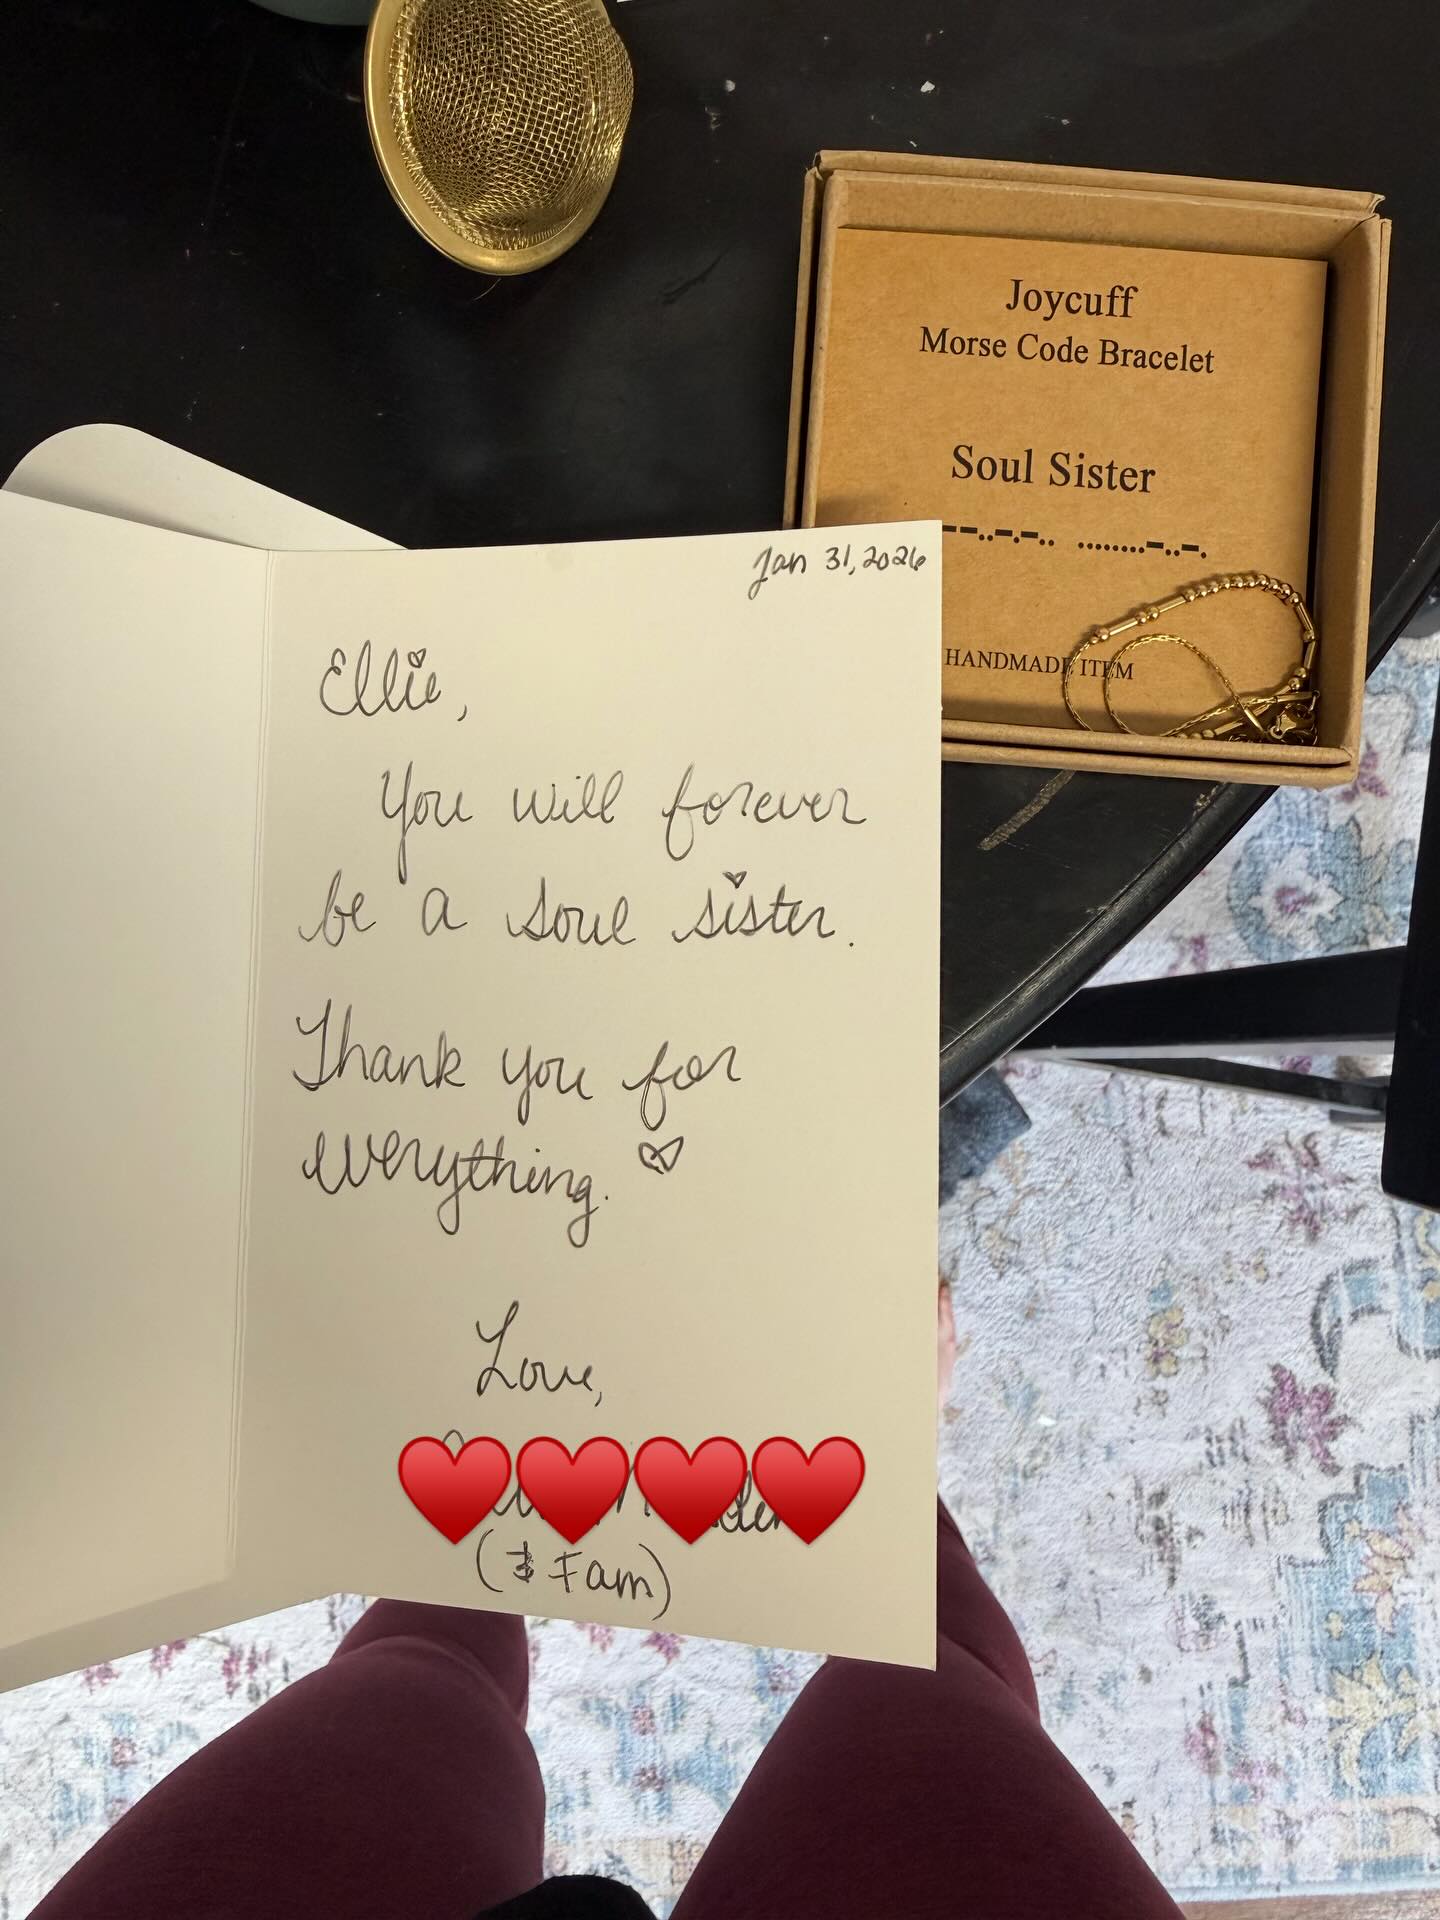 Joycuff
Morse Code Bracelet
Soul Sister
--..-.-.. ........-..-.
HANDMADE ITEM
Jan 31, 2026
Ellie,
You will forever
be a soul sister.
Thank you for
everything.
Love,
(& Fam)